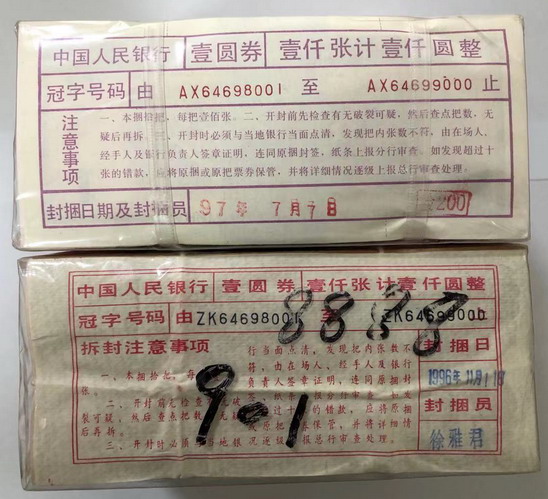 中国人民银行 壹圆券 壹仟张计壹仟圆整
冠字号码 由 AX64698001 至 AX64699000 止
注意事项
一、本捆拾把，每把壹佰张。二、开封前先检查有无破裂可疑，然后查点把数，无
疑后再拆。三、开封时必须与当地银行当面点清，发现把内张数不符，由在场人、
经手人及银行负责人签章证明，连同原捆封签，纸条上报分行审查。如发现超过十
张的错款，应将原捆或原把票券保管，并将详细情况逐级上报总行审查处理。
封捆日期及封捆员 97年 7月7日 200
中国人民银行 壹圆券 壹仟张计壹仟圆整
冠字号码 由ZK64698001 至 ZK64699000 止
8888
拆封注意事项
一、本捆拾把，每
张。
二、开封前先检查有无破
裂可疑，然后查点把数，无
后再拆。
三、开封时必须与当地银
行当面点清，发现把内张数不
符，由在场人、经手人及银行
负责人签章证明，连同原捆封
签，纸条上报分行审查。如发
过十张的错款，应将原捆
或原把票券保管，并将详细情
况逐级上报总行审查处理。
9-1
封捆日
1996年11月1日
封捆员
徐雅君